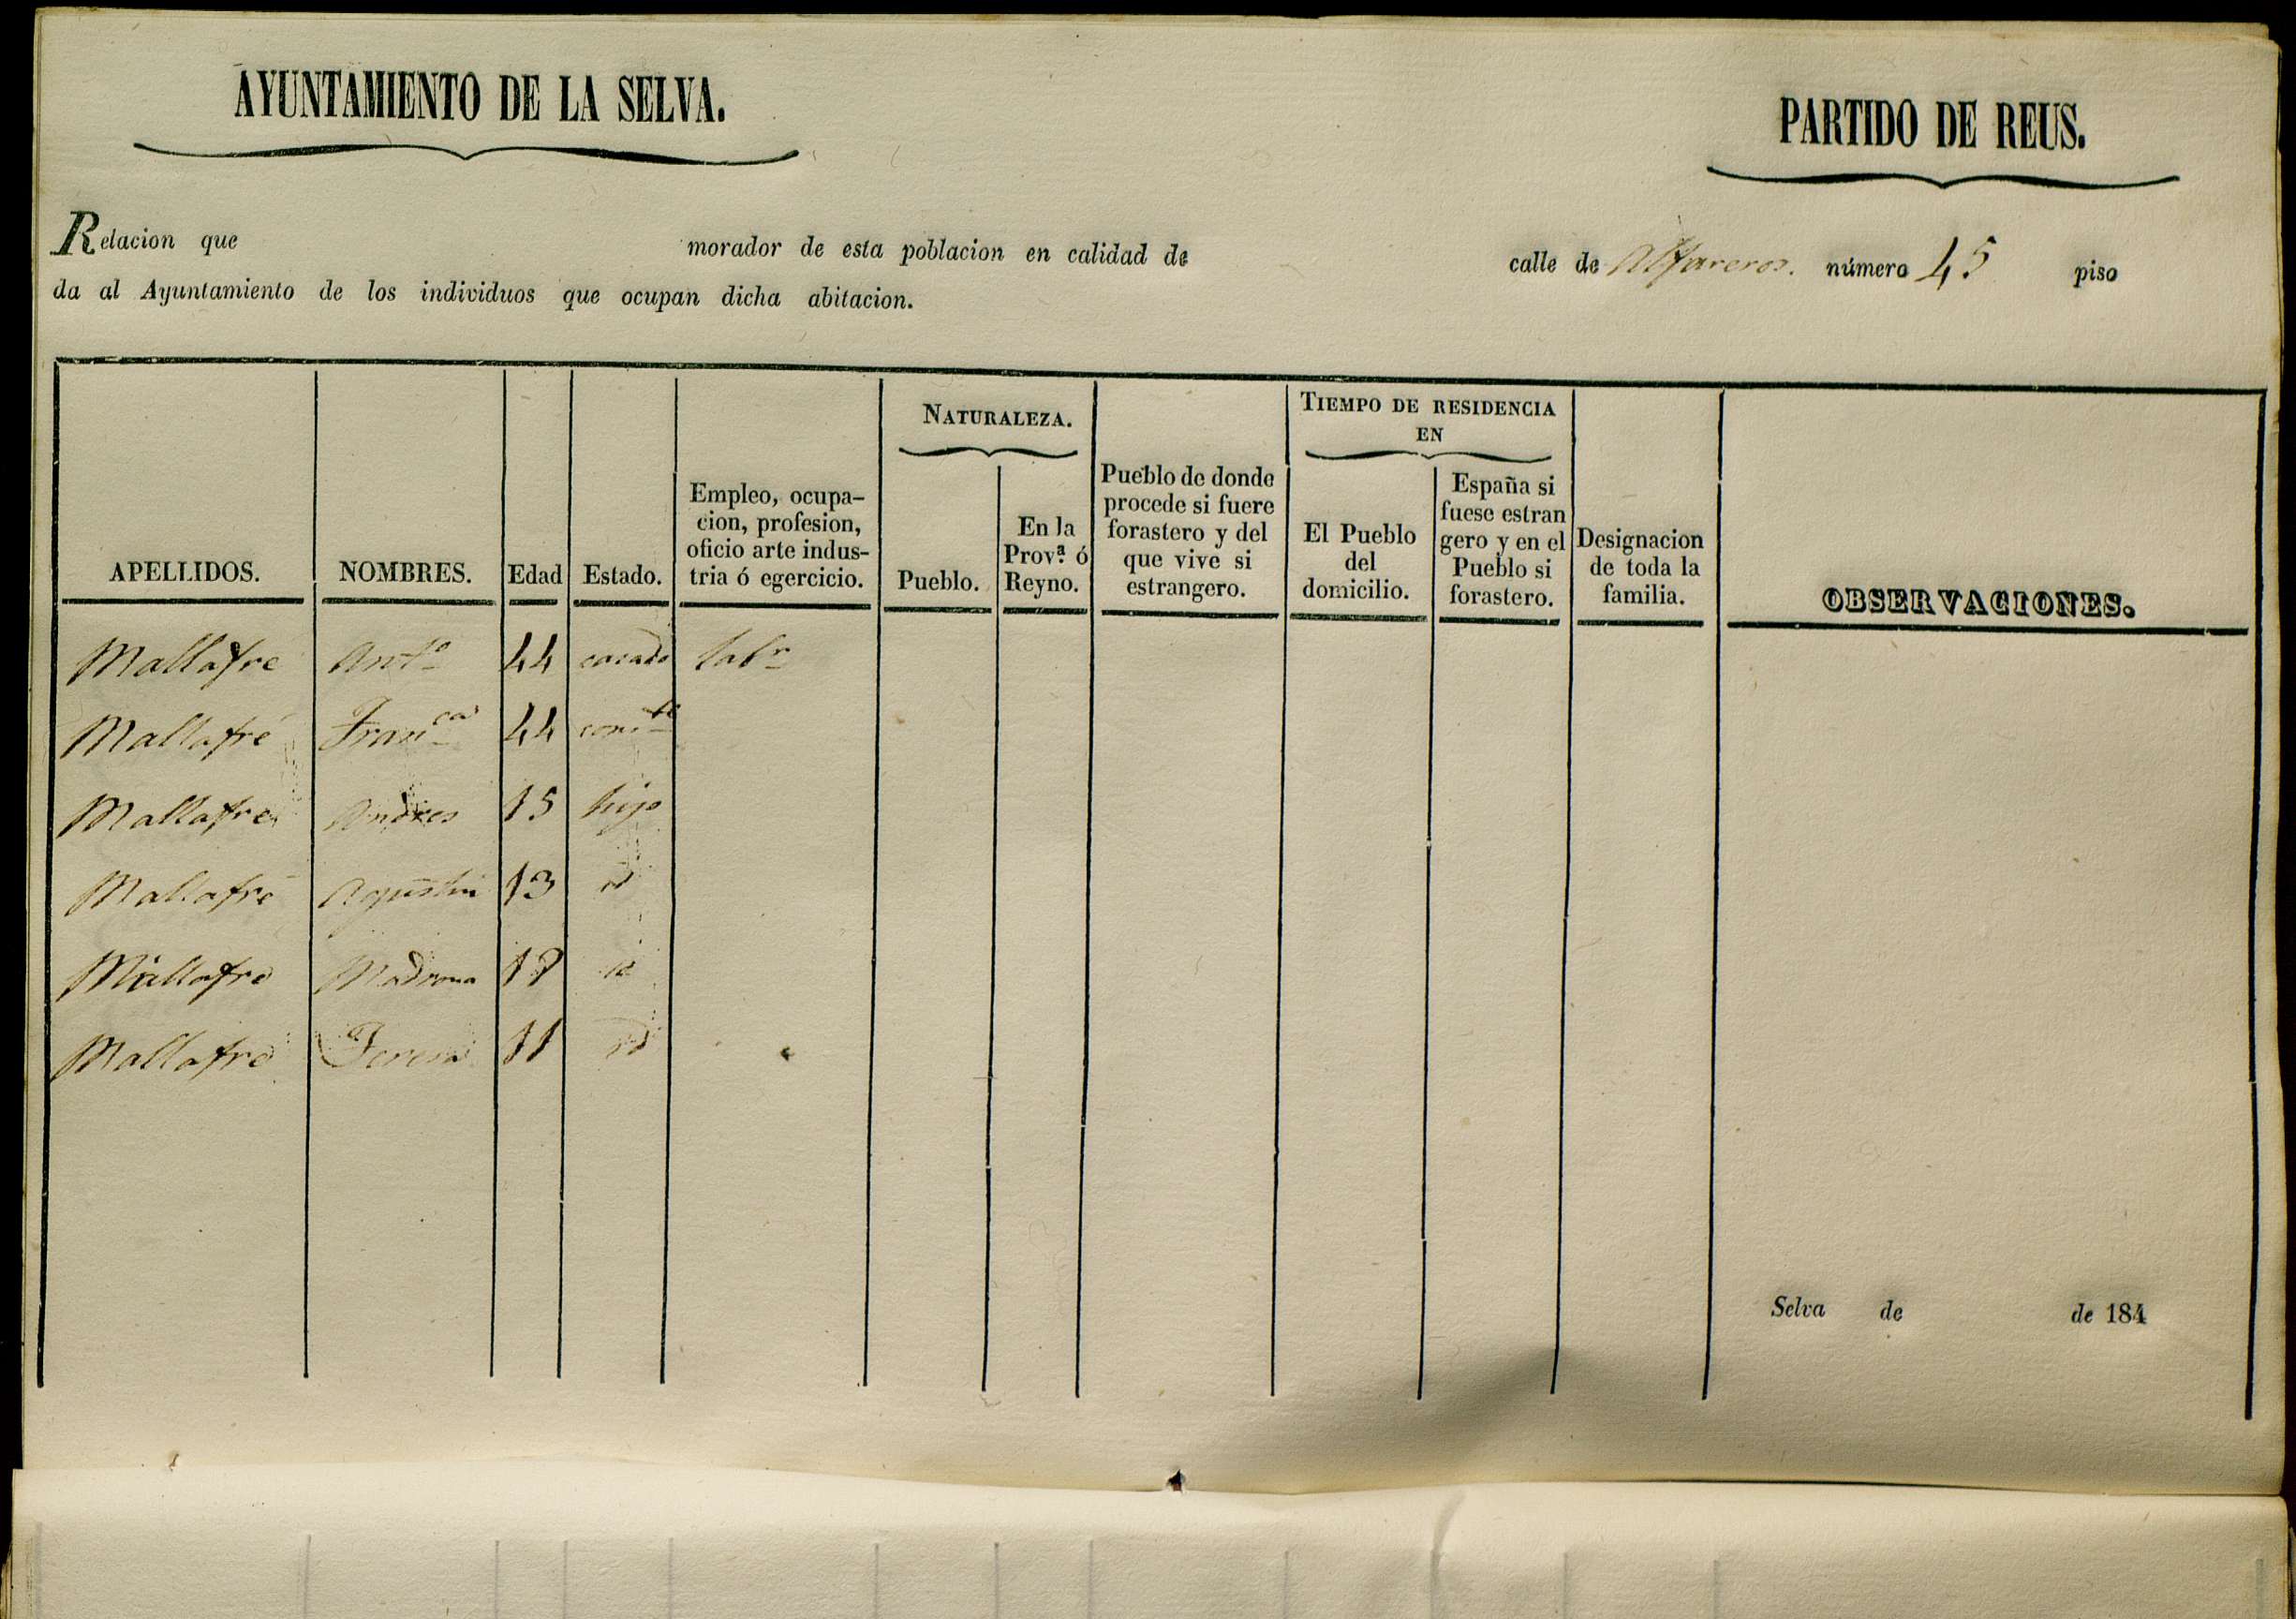 AYUNTAMIENTO DE LA SELVA.
PARTIDO DE REUS.
Relacion que morador de esta poblacion en calidad de calle de Alfareros. número 45 piso
da al Ayuntamiento de los individuos que ocupan dicha abitacion.
APELLIDOS.
NOMBRES.
Edad
Estado.
Empleo, ocupa-
cion, profesion,
oficio arte indus-
tria ó egercicio.
NATURALEZA.
Pueblo.
En la
Prov.ª ó
Reyno.
Pueblo de donde
procede si fuere
forastero y del
que vive si
estrangero.
TIEMPO DE RESIDENCIA
EN
El Pueblo
del
domicilio.
España si
fuese estran
gero y en el
Pueblo si
forastero.
Designacion
de toda la
familia.
OBSERVACIONES.
Mallafre Ant.º 44 casado lab.r
Mallafré Fran.ca 44 cons.te
Mallafre Andres 15 hijo
Mallafré Agustin 13 id
Mallafre Madrona id
Mallafre Teresa 11 id
Selva de de 184